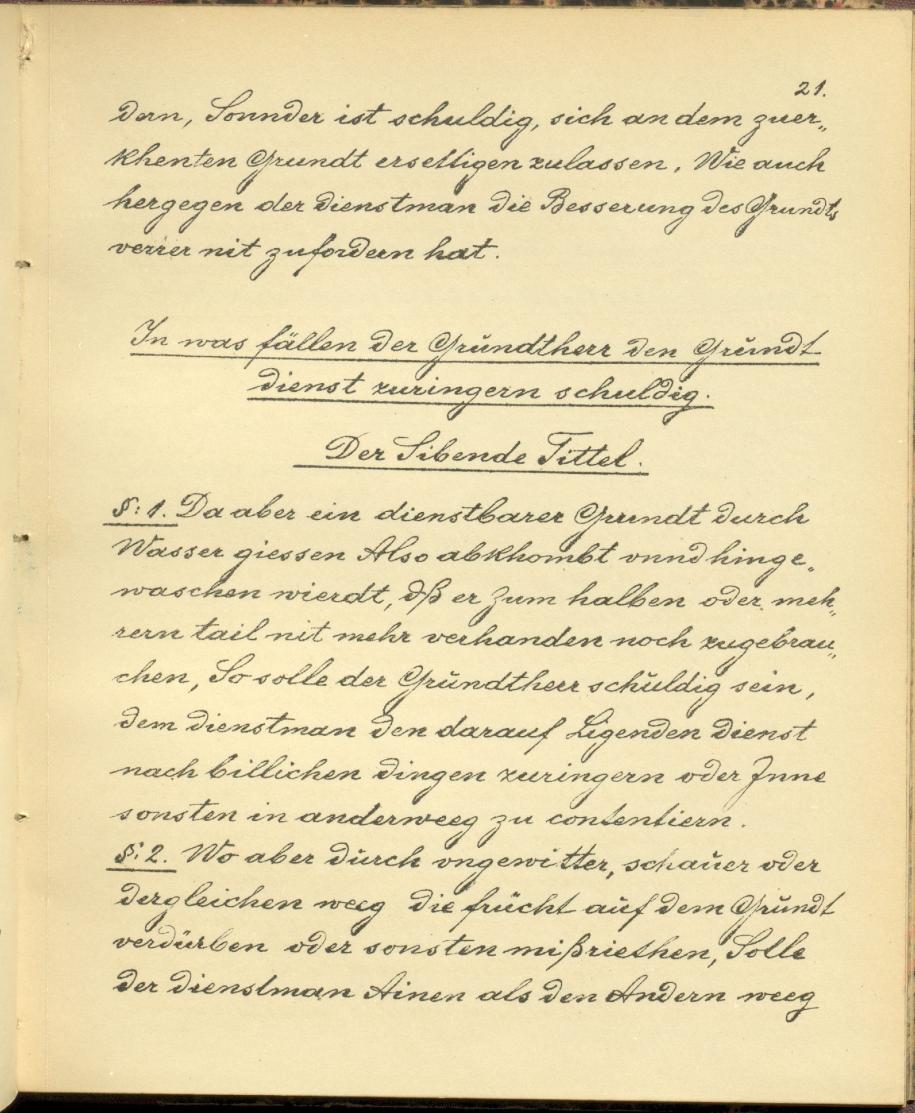 21.
dern, Sonnder ist schuldig, sich an dem zuer„
khenten Grundt ersettigen zulassen. Wie auch
hergegen der dienstman die Besserung des Grundts
verrer nit zufordern hat.
In was fällen der Grŭndtherr den Grŭndt
dienst zuringern schuldig.
Der Sibende Tittel.
§: 1. Da aber ein dienstbarer Grundt durch
Wasser giessen Also abkhombt vnnd hinge„
waschen wierdt, dß er zum halben oder meh„
rern tail nit mehr verhanden noch zugebrau„
chen, So solle der Grŭndtherr schŭldig sein,
dem dienstman den darauf Ligenden dienst
nach billichen dingen zuringern oder Jnne
sonsten in anderweeg zu contentiern.
§: 2. Wo aber dŭrch vngewitter, schaŭer oder
dergleichen weeg die frücht aŭf dem Grŭndt
verdürben oder sonsten mißriethen, Solle
der dienstman Ainen als den Andern weeg